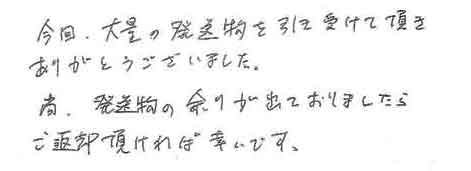 今回、大量の発送物を引き受けて頂き
ありがとうございました。
尚、発送物の余りが出ておりましたら
ご返却頂ければ幸いです。